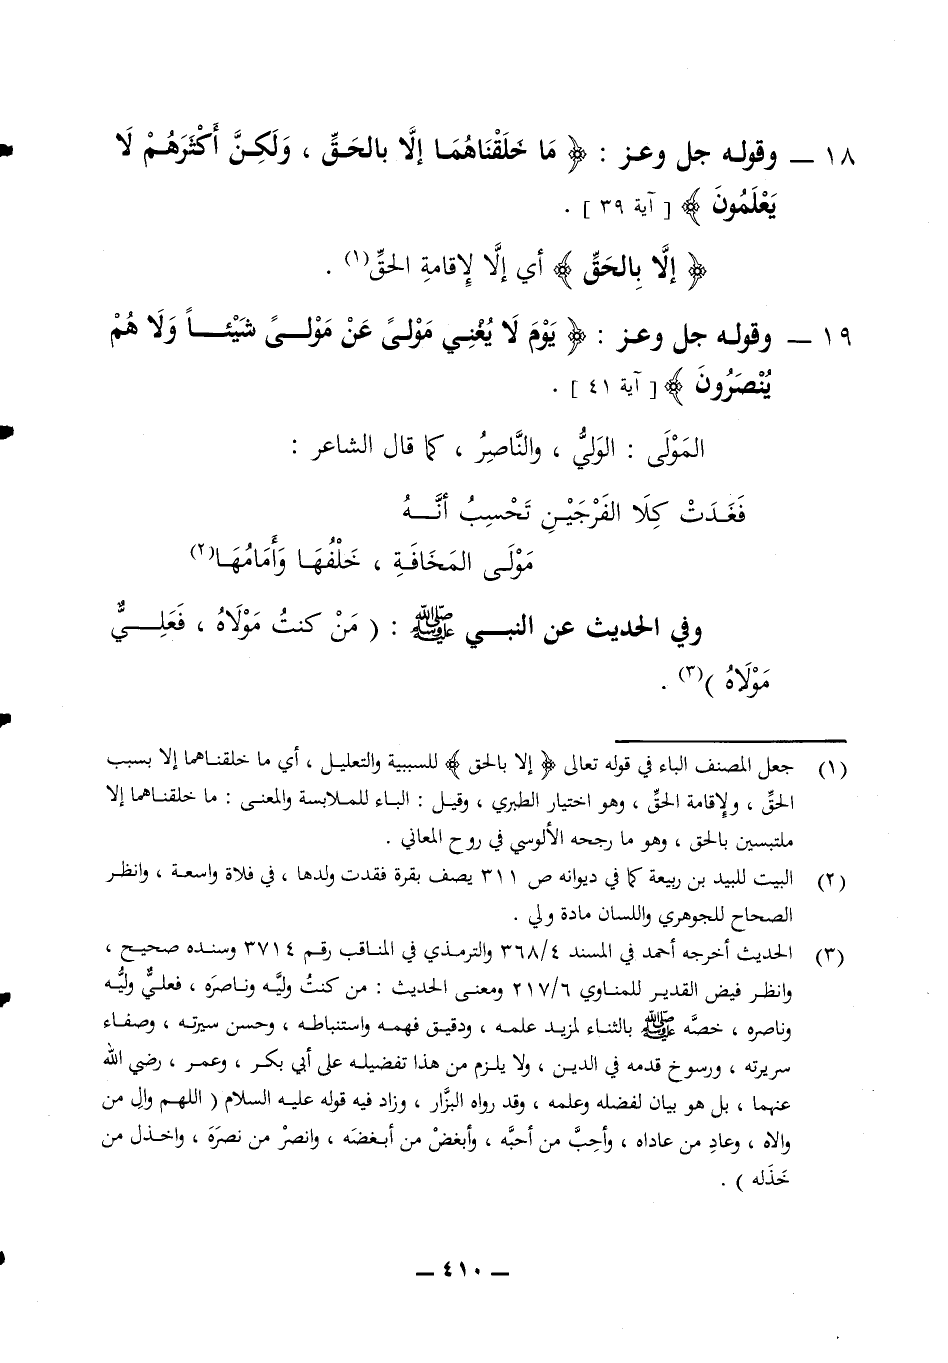 ١٨ ـ وقوله جل وعز : ﴿ مَا خَلَقْنَاهُمَا إلَّا بالحَقِّ ، وَلَكِنَّ أَكْثَرَهُمْ لَا
يَعْلَمُونَ ﴾ [ آية ٣٩ ] .
﴿ إلَّا بِالحَقِّ ﴾ أي إلَّا لإِقامةِ الحقِّ(١) .
١٩ ـ وقوله جل وعز : ﴿ يَوْمَ لَا يُغْنِي مَوْلىً عَنْ مَوْلىً شَيْئاً وَلَا هُمْ
يُنْصَرُونَ ﴾ [ آية ٤١ ] .
المَوْلَى : الوَليُّ ، والنَّاصِرُ ، كما قال الشاعر :
فَغَدَتْ كِلَا الفَرْجَيْنِ تَحْسِبُ أنَّهُ
مَوْلَى المَخَافَةِ ، خَلْفُهَا وَأَمَامُهَا(٢)
وفي الحديث عن النبي ﷺ : ( مَنْ كنتُ مَوْلَاهُ ، فَعَلِيٌّ
مَوْلَاهُ )(٣) .
(١) جعل المصنف الباء في قوله تعالى ﴿ إلا بالحق ﴾ للسببية والتعليل ، أي ما خلقناهما إلا بسبب
الحقِّ ، ولإقامة الحقِّ ، وهو اختيار الطبري ، وقيل : الباء للملابسة والمعنى : ما خلقناهما إلا
ملتبسين بالحق ، وهو ما رجحه الألوسي في روح المعاني .
(٢) البيت للبيد بن ربيعة كما في ديوانه ص ٣١١ يصف بقرة فقدت ولدها ، في فلاة واسعة ، وانظر
الصحاح للجوهري واللسان مادة ولي .
(٣) الحديث أخرجه أحمد في المسند ٣٦٨/٤ والترمذي في المناقب رقم ٣٧١٤ وسنده صحيح ،
وانظر فيض القدير للمناوي ٢١٧/٦ ومعنى الحديث : من كنتُ وليَّه وناصرَه ، فعليٌّ وليُّه
وناصره ، خصَّه ﷺ بالثناء لمزيد علمه ، ودقيق فهمه واستنباطه ، وحسن سيرته ، وصفاء
سريرته ، ورسوخ قدمه في الدين ، ولا يلزم من هذا تفضيله على أبي بكر ، وعمر ، رضي الله
عنهما ، بل هو بيان لفضله وعلمه ، وقد رواه البزَّار ، وزاد فيه قوله عليه السلام ( اللهم والِ من
والاه ، وعادِ من عاداه ، وأحِبَّ من أحبَّه ، وأبغضْ من أبغضَه ، وانصرْ من نصرَهَ ، واخذل من
خَذَله ) .
ـ ٤١٠ ـ